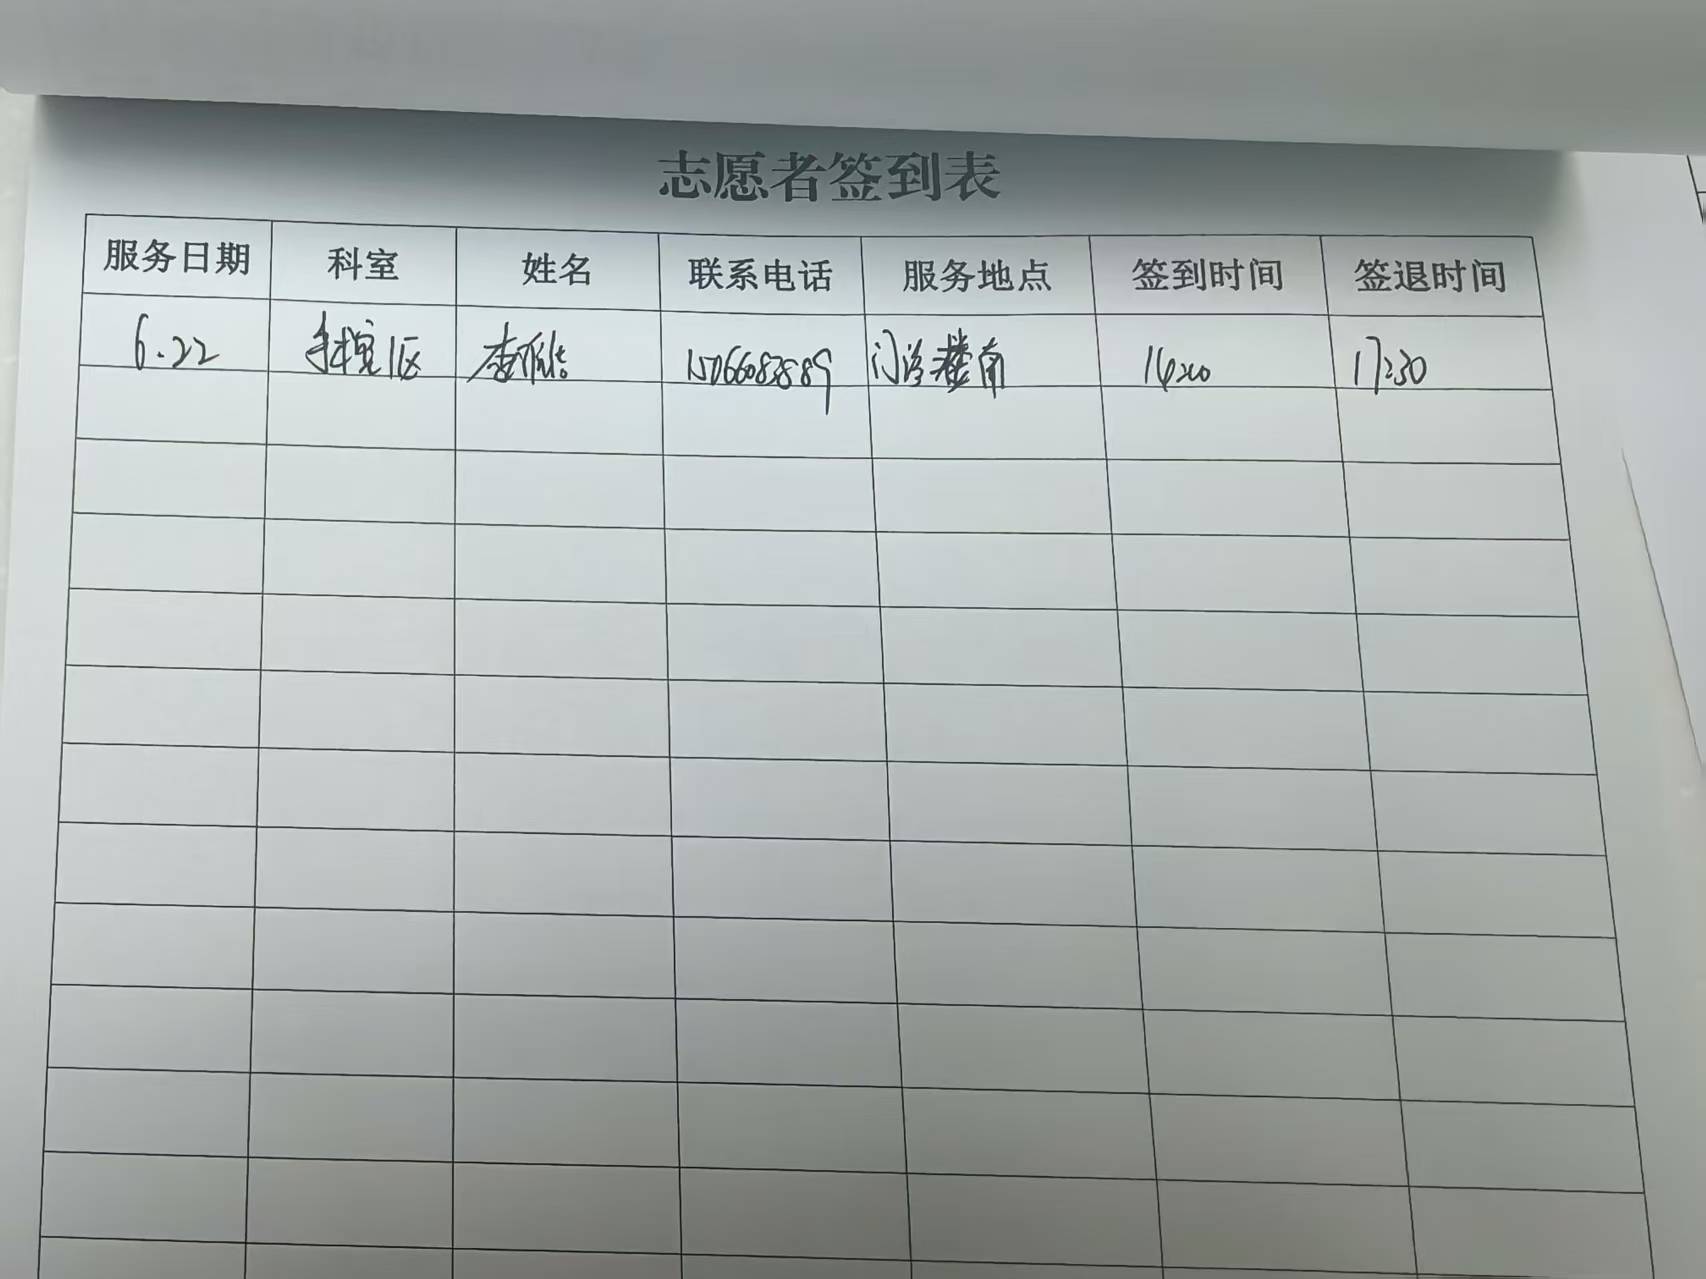 志愿者签到表
服务日期 科室 姓名 联系电话 服务地点 签到时间 签退时间
6.22 手术室1区 李 15066083889 门诊楼南 14:00 17:30